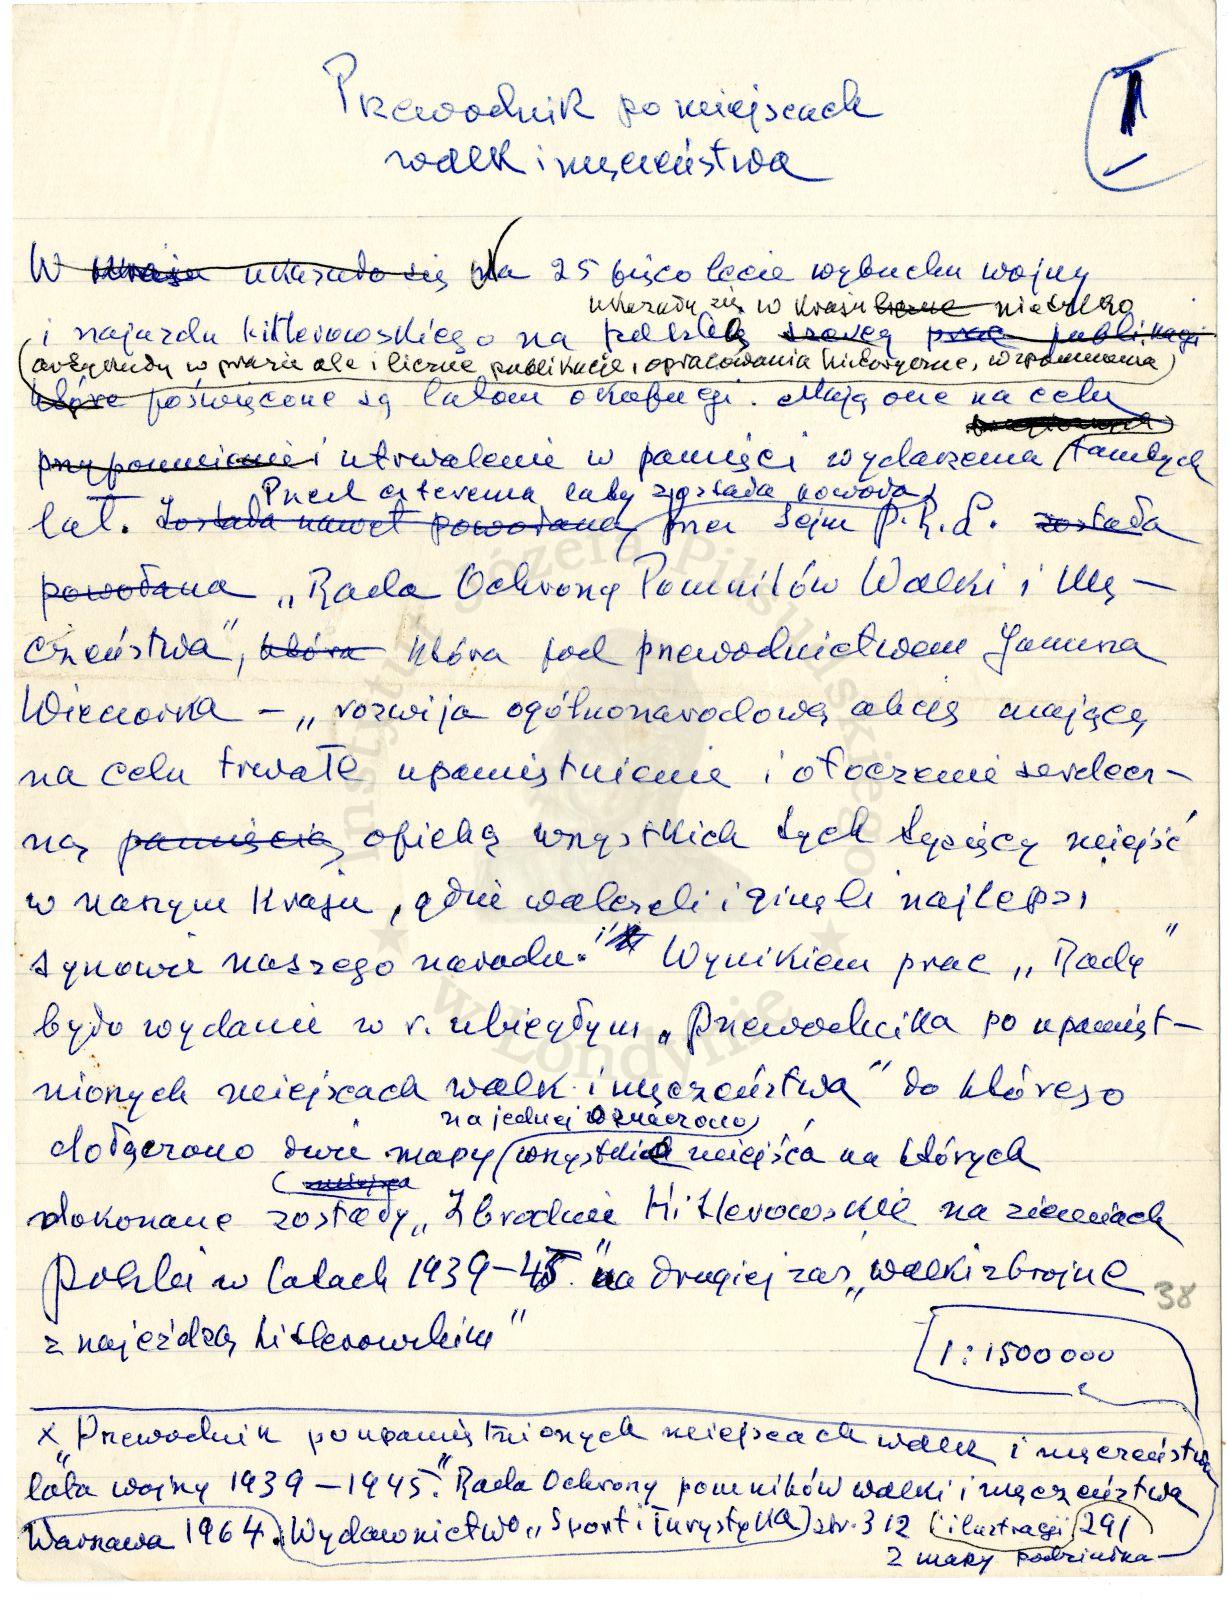 Przewodnik po miejscach
walk i męczeństwa
I
W Kraju ukazało się Na 25 pięciolecie wybuchu wojny
ukazały się w Kraju liczne nie tylko
i najazdu hitlerowskiego na Polskę szereg prac publikacji
artykuły w prasie ale i liczne publikacje, opracowania historyczne, wspomnienia
które poświęcone są latom okupacji. Mają one na celu
przypomnienie i utrwalenie w pamięci wydarzenia tamtych
Przed czterema laty została powoła
lat. Została nawet powołana przez Sejm P.R.L. została
powołana „Rada Ochrony Pomników Walki i Mę-
czeństwa", która która pod przewodnictwem Janusza
Wieczorka – „rozwija ogólnonarodową akcję mającą
na celu trwałe upamiętnienie i otoczenie serdecz-
ną pamięcią opieką wszystkich tych tysięcy miejsc
w naszym Kraju, gdzie walczyli i ginęli najlepsi
synowie naszego narodu." Wynikiem prac „Rady"
było wydanie w r. ubiegłym „Przewodnika po upamięt-
nionych miejscach walk i męczeństwa" do którego
na jednej oznaczono
dołączono dwie mapy wszystkie miejsca na których
dokonane zostały „Zbrodnie Hitlerowskie na ziemiach
Polski w latach 1939-45." na drugiej zaś „walki zbrojne
38
z najeźdzą hitlerowskim"
1:1500000
x „Przewodnik po upamiętnionych miejscach walk i męczeństwa
lata wojny 1939-1945." Rada Ochrony pomników walki i męczeństwa
Warszawa 1964. Wydawnictwo „Sport i Turystyka" str. 312 (ilustracji 291
2 mapy podziałka
Instytut Józefa Piłsudskiego
w Londynie